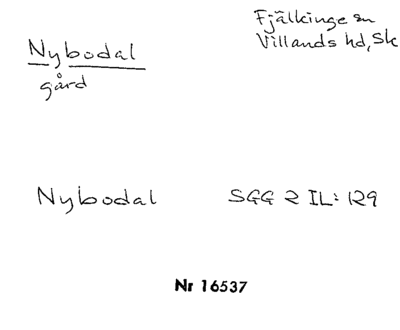 Nybodal
gård
Fjälkinge sn
Villands hd, Sk
Nybodal SGG 2 IL: 129
Nr 16537